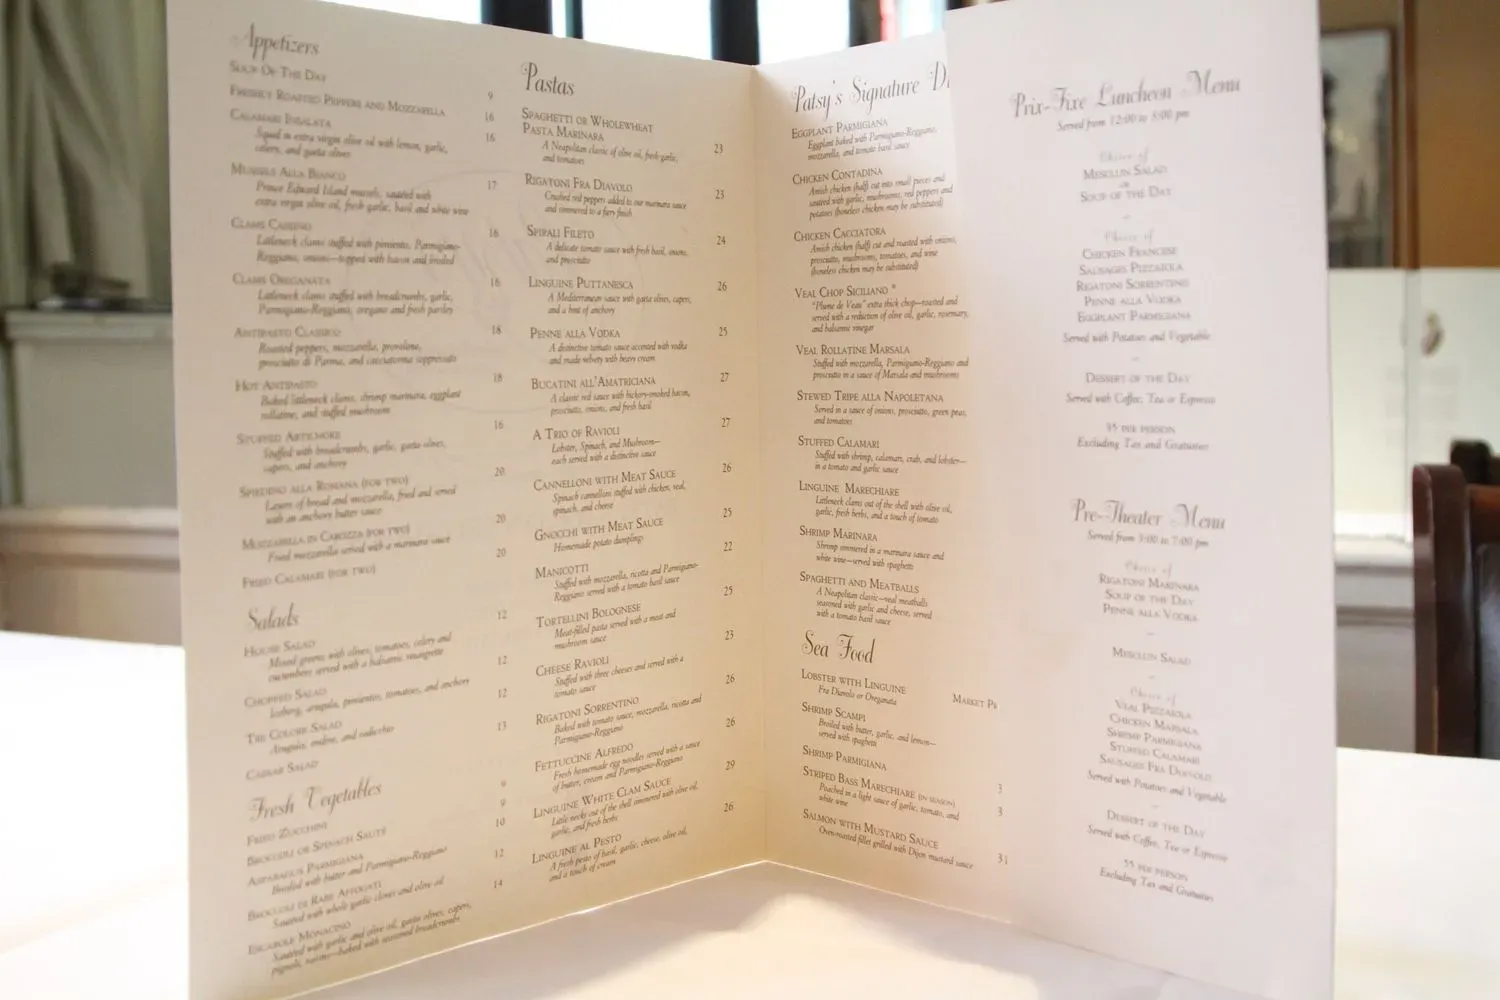 Appetizers
Soup Of The Day 9
Freshly Roasted Peppers and Mozzarella 16
Calamari Insalata 16
Squid in extra virgin olive oil with lemon, garlic,
celery, and gaeta olives
Mussels Alla Bianco 17
Prince Edward Island mussels, sautéed with
extra virgin olive oil, fresh garlic, basil and white wine
Clams Casino 16
Littleneck clams stuffed with pimiento, Parmigiano-
Reggiano, onions—topped with bacon and broiled
Clams Oreganata 16
Littleneck clams stuffed with breadcrumbs, garlic,
Parmigiano-Reggiano, oregano and fresh parsley
Antipasto Classico 18
Roasted peppers, mozzarella, provolone,
prosciutto di Parma, and cacciatorina soppressata
Hot Antipasto 18
Baked littleneck clams, shrimp marinara, eggplant
rollatine, and stuffed mushroom
Stuffed Artichoke 16
Stuffed with breadcrumbs, garlic, gaeta olives,
capers, and anchovy
Spiedino alla Romana (for two) 20
Layers of bread and mozzarella, fried and served
with an anchovy butter sauce
Mozzarella in Carozza (for two) 20
Fried mozzarella served with a marinara sauce
Fried Calamari (for two) 20
Salads
House Salad 12
Mixed greens with olives, tomatoes, celery and
cucumbers served with a balsamic vinaigrette
Chopped Salad 12
Iceberg, arugula, pimientos, tomatoes, and anchovy
Tri Colore Salad 12
Arugula, endive, and radicchio
Caesar Salad 13
Fresh Vegetables
Fried Zucchini 9
Broccoli or Spinach Sauté 9
Asparagus Parmigiana 10
Broiled with butter and Parmigiano-Reggiano
Broccoli di Rabe Affogati 12
Sautéed with whole garlic cloves and olive oil
Escarole Monacino 14
Sautéed with garlic and olive oil, gaeta olives, capers,
pignoli, raisins—baked with seasoned breadcrumbs
Pastas
Spaghetti or Wholewheat
Pasta Marinara 23
A Neapolitan classic of olive oil, fresh garlic,
and tomatoes
Rigatoni Fra Diavolo 23
Crushed red peppers added to our marinara sauce
and simmered to a fiery finish
Spirali Fileto 24
A delicate tomato sauce with fresh basil, onions,
and prosciutto
Linguine Puttanesca 26
A Mediterranean sauce with gaeta olives, capers,
and a hint of anchovy
Penne alla Vodka 25
A distinctive tomato sauce accented with vodka
and made velvety with heavy cream
Bucatini all'Amatriciana 27
A classic red sauce with hickory-smoked bacon,
prosciutto, onions, and fresh basil
A Trio of Ravioli 27
Lobster, Spinach, and Mushroom—
each served with a distinctive sauce
Cannelloni with Meat Sauce 26
Spinach cannelloni stuffed with chicken, veal,
spinach, and cheese
Gnocchi with Meat Sauce 25
Homemade potato dumplings
Manicotti 22
Stuffed with mozzarella, ricotta and Parmigiano-
Reggiano served with a tomato basil sauce
Tortellini Bolognese 25
Meat-filled pasta served with a meat and
mushroom sauce
Cheese Ravioli 23
Stuffed with three cheeses and served with a
tomato sauce
Rigatoni Sorrentino 26
Baked with tomato sauce, mozzarella, ricotta and
Parmigiano-Reggiano
Fettuccine Alfredo 26
Fresh homemade egg noodles served with a sauce
of butter, cream and Parmigiano-Reggiano
Linguine White Clam Sauce 29
Little necks out of the shell simmered with olive oil,
garlic, and fresh herbs
Linguine al Pesto 26
A fresh pesto of basil, garlic, cheese, olive oil,
and a touch of cream
Patsy's Signature Di
Eggplant Parmigiana
Eggplant baked with Parmigiano-Reggiano,
mozzarella, and tomato basil sauce
Chicken Contadina
Amish chicken (half) cut into small pieces and
sautéed with garlic, mushrooms, red peppers and
potatoes (boneless chicken may be substituted)
Chicken Cacciatora
Amish chicken (half) cut and roasted with onions,
prosciutto, mushrooms, tomatoes, and wine
(boneless chicken may be substituted)
Veal Chop Siciliano *
"Plume de Veau" extra thick chop—roasted and
served with a reduction of olive oil, garlic, rosemary,
and balsamic vinegar
Veal Rollatine Marsala
Stuffed with mozzarella, Parmigiano-Reggiano and
prosciutto in a sauce of Marsala and mushrooms
Stewed Tripe alla Napoletana
Served in a sauce of onions, prosciutto, green peas,
and tomatoes
Stuffed Calamari
Stuffed with shrimp, calamari, crab, and lobster—
in a tomato and garlic sauce
Linguine Marechiare
Littleneck clams out of the shell with olive oil,
garlic, fresh herbs, and a touch of tomato
Shrimp Marinara
Shrimp simmered in a marinara sauce and
white wine—served with spaghetti
Spaghetti and Meatballs
A Neapolitan classic—veal meatballs
seasoned with garlic and cheese, served
with a tomato basil sauce
Sea Food
Lobster with Linguine Market Pr
Fra Diavolo or Oreganata
Shrimp Scampi
Broiled with butter, garlic, and lemon—
served with spaghetti
Shrimp Parmigiana 3
Striped Bass Marechiare (in season) 3
Poached in a light sauce of garlic, tomato, and
white wine
Salmon with Mustard Sauce 31
Oven-roasted fillet grilled with Dijon mustard sauce
Prix-Fixe Luncheon Menu
Served from 12:00 to 3:00 pm
Choice of
Mesclun Salad
or
Soup of the Day
~
Choice of
Chicken Francese
Sausages Pizzaiola
Rigatoni Sorrentino
Penne alla Vodka
Eggplant Parmigiana
Served with Potatoes and Vegetable
~
Dessert of the Day
Served with Coffee, Tea or Espresso
35 per person
Excluding Tax and Gratuities
Pre-Theater Menu
Served from 5:00 to 7:00 pm
Choice of
Rigatoni Marinara
Soup of the Day
Penne alla Vodka
~
Mesclun Salad
~
Choice of
Veal Pizzaiola
Chicken Marsala
Shrimp Parmigiana
Stuffed Calamari
Sausages Fra Diavolo
Served with Potatoes and Vegetable
~
Dessert of the Day
Served with Coffee, Tea or Espresso
55 per person
Excluding Tax and Gratuities